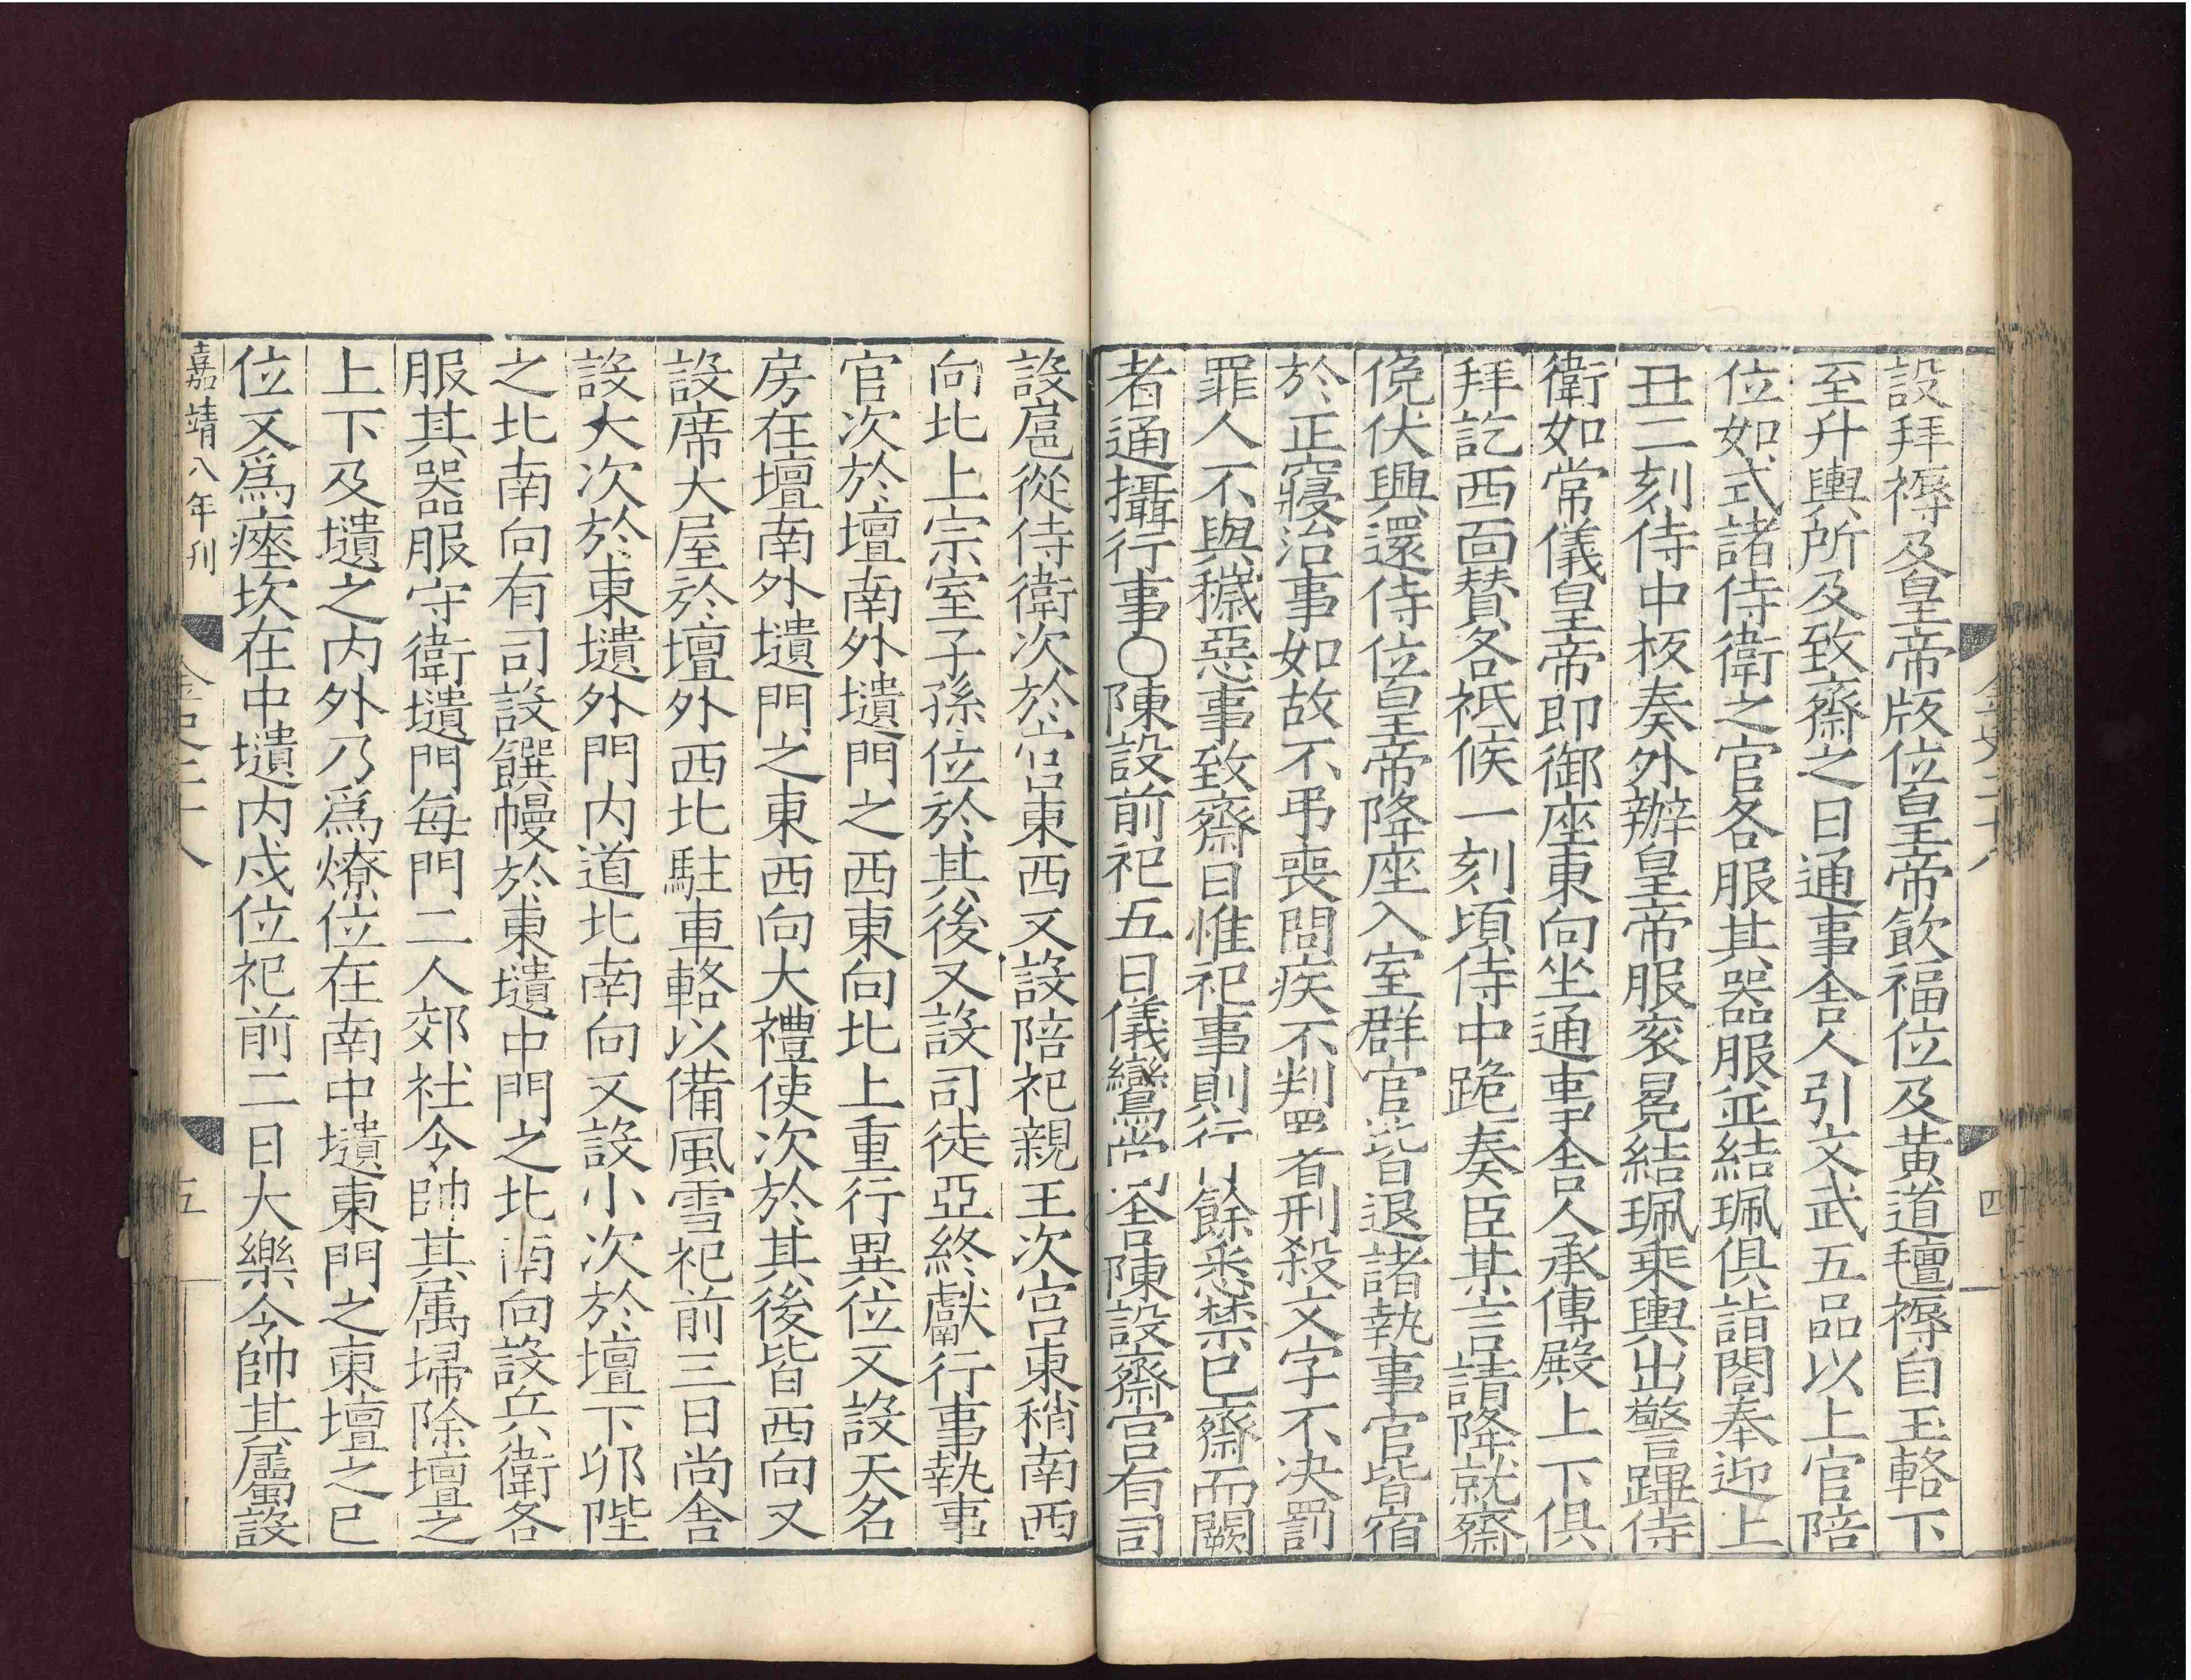 設拜褥及皇帝版位皇帝飲福位及黃道氊褥自玉輅下
至升輿所及致齋之日通事舍人引文武五品以上官陪
位如式諸侍衛之官各服其器服並結珮俱詣閤奉迎上
丑二刻侍中板奏外辦皇帝服衮冕結珮乘輿出警蹕侍
衛如常儀皇帝即御座東向坐通事舍人承傳殿上下俱
拜訖西面賛各祗候一刻頃侍中跪奏臣某言請降就齋
俛伏興還侍位皇帝降座入室群官皆退諸執事官皆宿
於正寢治事如故不弔喪問疾不判署刑殺文字不決罰
罪人不與穢惡事致齋日惟祀事則行餘悉禁已齋而闕
者通攝行事○陳設前祀五日儀鸞尚舍陳設齋宮有司
設扈從侍衛次於宮東西又設陪祀親王次宮東稍南西
向北上宗室子孫位於其後又設司徒亞終獻行事執事
官次於壇南外壝門之西東向北上重行異位又設天名
房在壇南外壝門之東西向大禮使次於其後皆西向又
設席大屋於壇外西北駐車輅以備風雪祀前三日尚舍
設大次於東壝外門内道北南向又設小次於壇下卯陛
之北南向有司設饌幔於東壝中門之北南向設兵衛各
服其器服守衛壝門每門二人郊社令帥其属埽除壇之
上下及壝之内外乃爲燎位在南中壝東門之東壇之巳
位又爲瘞坎在中壝内戌位祀前二日大樂令帥其屬設
嘉靖八年刊
金史二十八
五